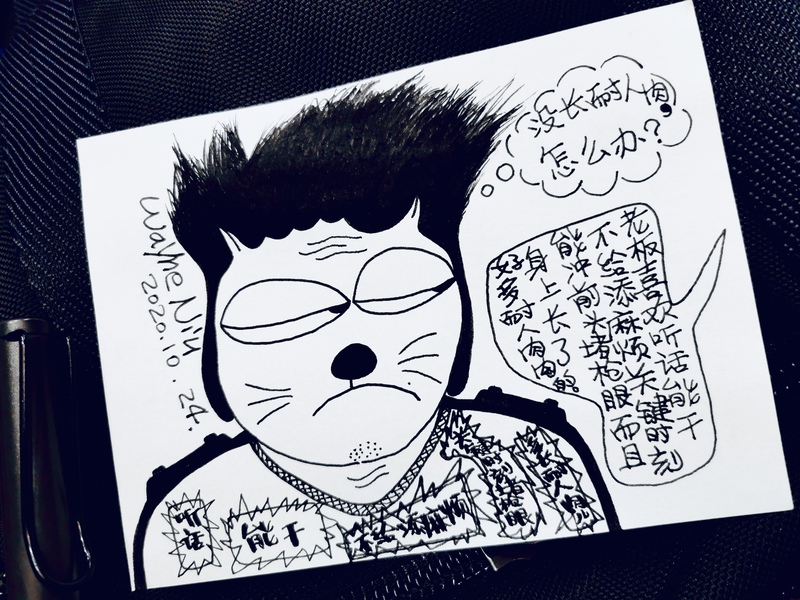 没长耐人肉,
怎么办?
老板喜欢听话能干
不给添麻烦关键时刻
能冲前头堵枪眼而且
身上长了
好多耐人肉肉的
Wayne Niu
2020.10.24.
听话
能干
不给添麻烦